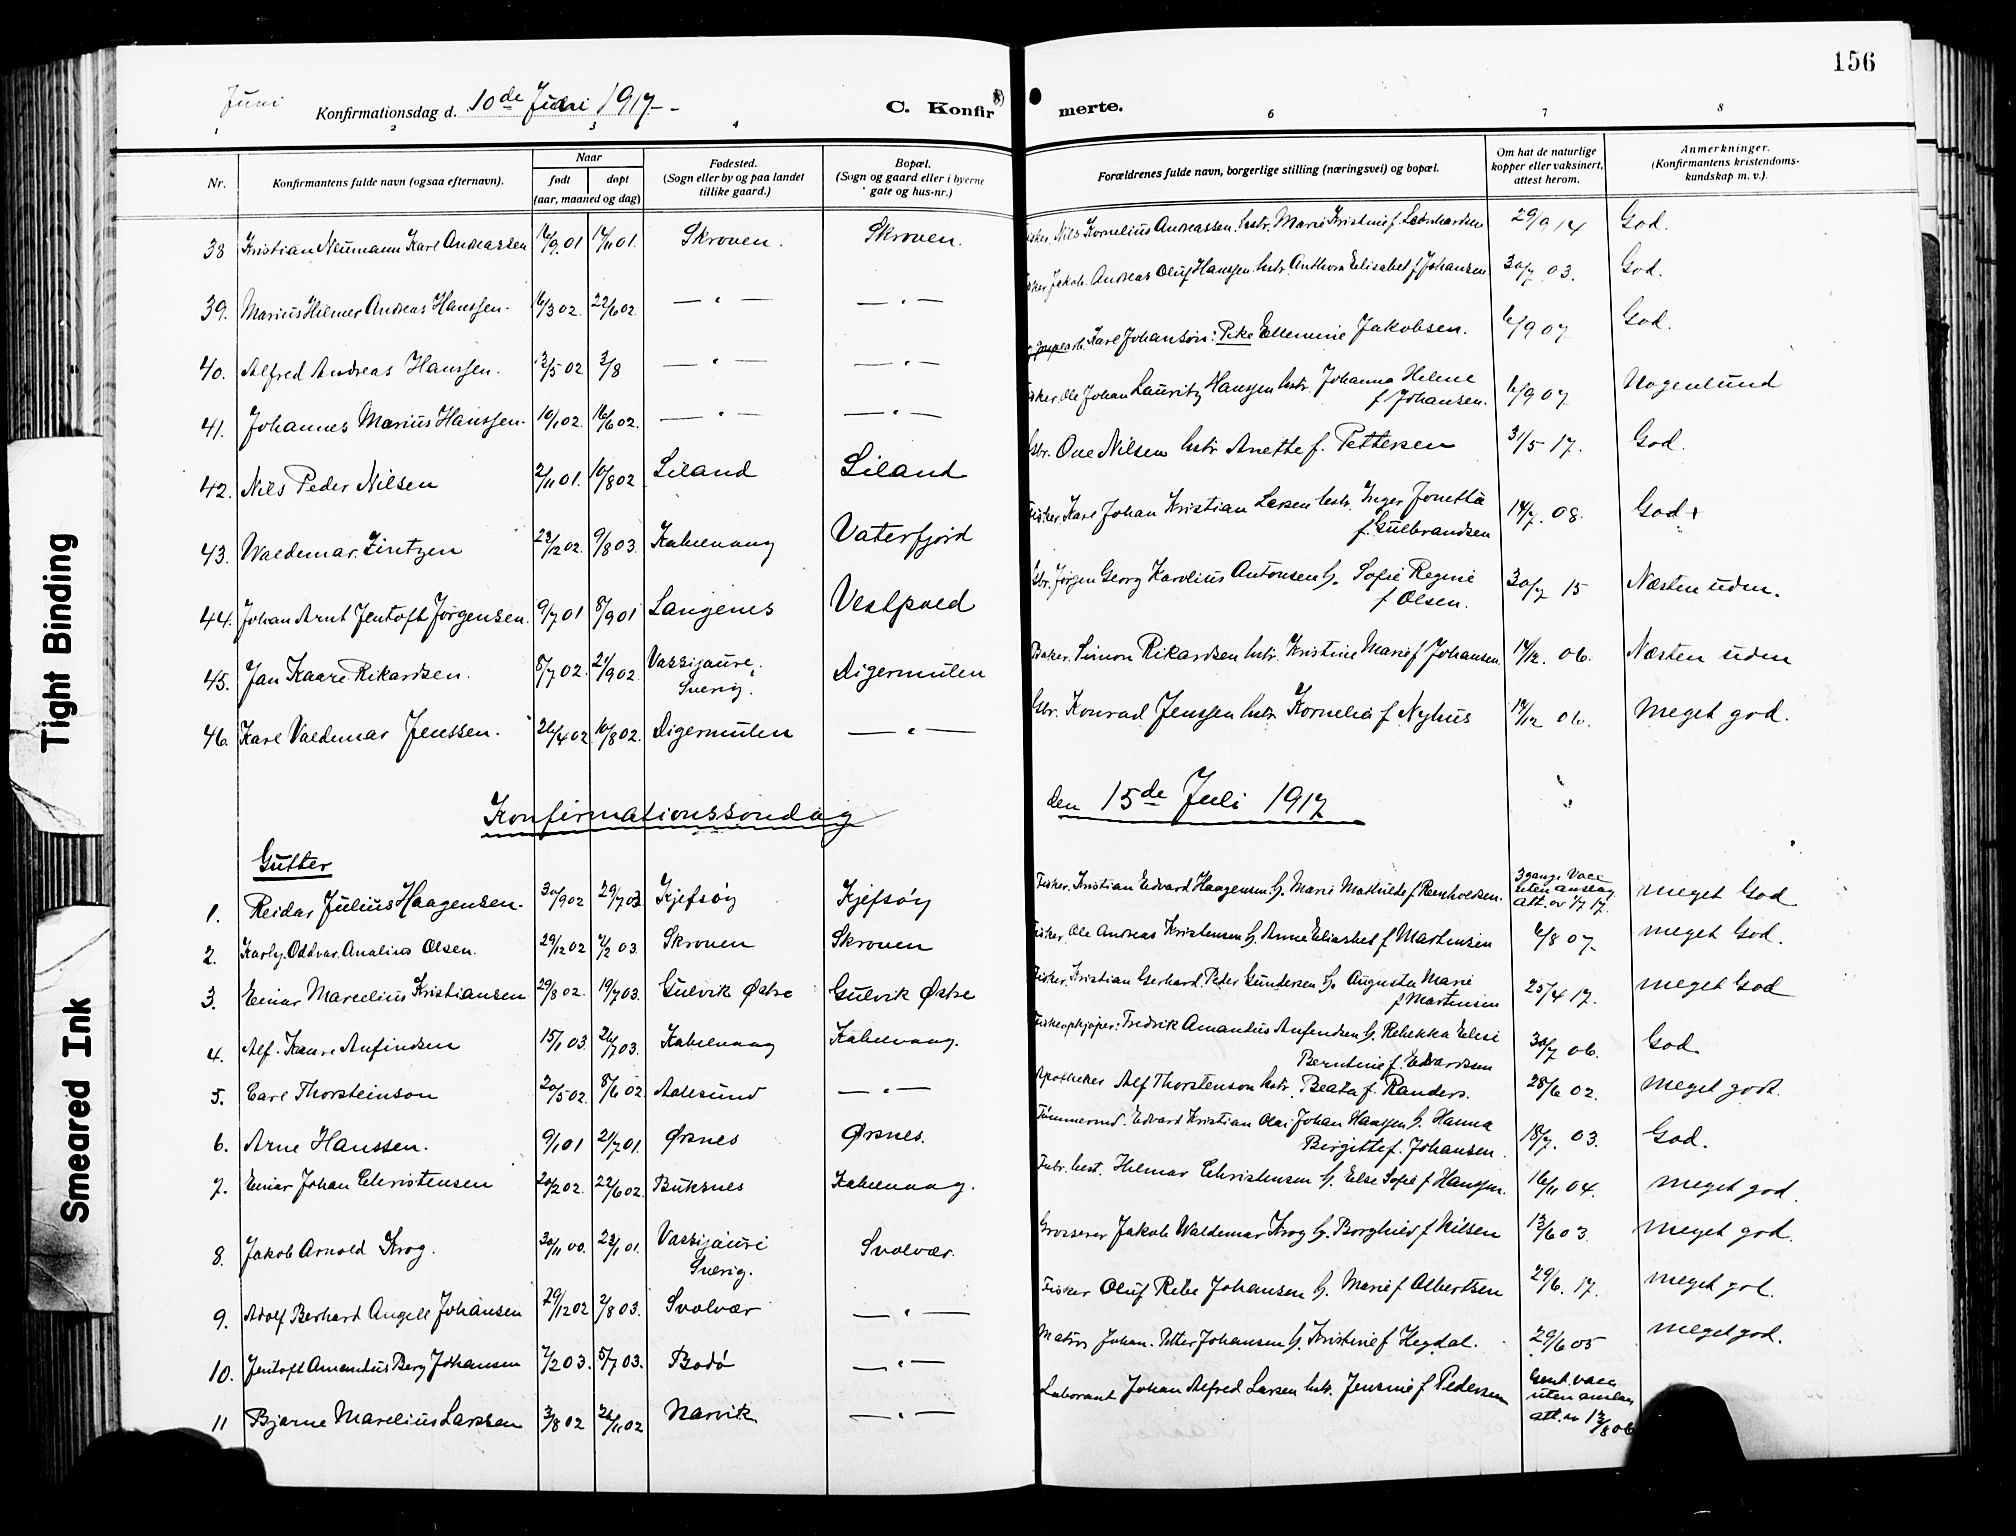 156
Juni
Konfirmationsdag d. 10de Juni 1917
C. Konfirmerte.
1 2 3 4 6 7 8
Nr.
Konfirmantens fulde navn (ogsaa efternavn).
Naar
født døpt
(aar, maaned og dag)
Fødested.
(Sogn eller by og paa landet
tillike gaard.)
Bopæl.
(Sogn og gaard eller i byerne
gate og hus-nr.)
Forældrenes fulde navn, borgerlige stilling (næringsvei) og bopæl.
Om hat de naturlige
kopper eller vaksinert,
attest herom.
Anmerkninger.
(Konfirmantens kristendoms-
kundskap m. v.).
38 Kristian Neumann Karl Andreassen 16/9 01 17/11 01. Skroven. Skroven. Fisker. Nils Kornelius Andreassen, hstr. Marie Kristine f. Leonhardsen 29/9 14 God.
39. Marius Hilmer Andreas Hanssen. 16/3 02. 22/6 02. — " — — " — Fisker Jakob Andreas Oluf Hanssen hstr. Anthora Elisabet f Johansen 30/7. 03. God.
40. Alfred Andreas Hanssen. 13/5 02 3/8 — " — — " — Karl Johanson: Pike Ellemine Jakobsen. 6/9 07 God.
41. Johannes Marius Hanssen. 10/1 02. 16/6 02. — " — — " — Fisker. Ole Johan Lauritz Hanssen hstr. Johanna Helene
f Johansen. 6/9 07 Nogenlund
42. Nils Peder Nilsen 2/11 01. 10/8 02 Liland Liland Gbr. Ove Nilsen hstr Anette f. Pettersen 31/5 17. God.
43. Waldemar Zintzen 23/12 02. 9/8 03. Kabelvaag Vaterfjord Fisker, Karl Johan Kristian Larsen hstr. Inger Jonetta
f. Gulbrandsen 14/7. 08. God +
44. Johan Arnt Jentoft Jørgensen. 9/7 01 8/9 01 Langenes Vestpold Gbr. Jørgen Georg Karolius Antonsen h. Sofie Regine
f Olsen. 30/7 15 Næsten uden.
45. Jan Kaare Rikardsen. 5/7 02. 21/9 02. Vassijaure.
Sverig. Digermulen Baker. Simon Rikardsen hstr. Kristine Marie f Johansen. 14/12. 06. Næsten uden
46. Karl Valdemar Jenssen. 26/4 02. 10/8 02. Digermulen — " — Gbr. Konrad Jenssen hstr. Kornelia f Nyhus 14/12 06. Meget god.
Konfirmationssøndag den 15de Juli 1917
Gutter
1. Reidar Julius Haagensen. 30/9 02 29/7 03 Kjefsøy Kjefsøy Fisker. Kristian Edvard Haagensen h. Marie Mathilde f Reinholdsen. 3 gange Vacc
uten anslag
att. av 1/7 17. meget God
2. Karly. Oddvar. Analius Olsen. 29/12 02 7/2 03. Skroven Skroven Fisker. Ole Andreas Kristensen h. Anne Eliasbet f Martinsen 6/8 07. meget God.
3. Einar Marcelius Kristiansen 29/8 02. 19/7 03. Gulvik Østre Gulvik Østre Fisker. Kristian Gerhard. Peder Gundersen h. Augusta Marie
f Martinsen 25/4 17. meget God
4. Alf. Kaare Anfindsen 15/1 03. 26/7 03. Kabelvaag Kabelvaag. Fiskeopkjøper: Fredrik Amandus Anfindsen h. Rebekka Elesi
Berntine f. Edvardsen 30/7 06. God.
5. Carl Thorsteinson 20/5 02. 8/6 02. Aalesund — " — Apotheker Alf Thorstenson hstr. Beata f. Randers. 28/6 02. meget godt.
6. Arne Hanssen. 9/1 01 21/7 01. Ørsnes Ørsnes. Tømmermd. Edvard Kristian Olai Johan Hanssen h. Hanna
Birgitte f. Johansen. 18/7. 03. God.
7. Einar Johan Christensen 20/2 02. 22/6 02. Buksnes Kabelvaag. Hilmar Christensen h. Else Sofie f Hanssen. 16/11 04. meget god.
8. Jakob Arnold Krog. 30/11 00. 23/1 01. Vassijauri
Sverig. Svolvær. Grosserer Jakob Waldemar Krog h. Borghild f Nilsen 13/6 03. meget god.
9. Adolf Berhard Angell Johansen 29/12 02 2/8 03. Svolvær — " — Fisker Oluf Rebe Johansen h. Marie f Albertsen 29/6. 17. meget god.
10. Jentoft Amandus Berg Johansen 7/2 03. 5/7 03. Bodø — " — Johan. Petter Johansen h. Kristine f Hegdal. 29/6 05 meget god.
11 Bjarne Marelius Larssen 3/8 02 26/11 02 Narvik — " — Laborant Johan Alfred Larsen hstr. Jensine f Pedersen vacc
uten anslag
att. av 13/8 06
Tight Binding
Smeared Ink